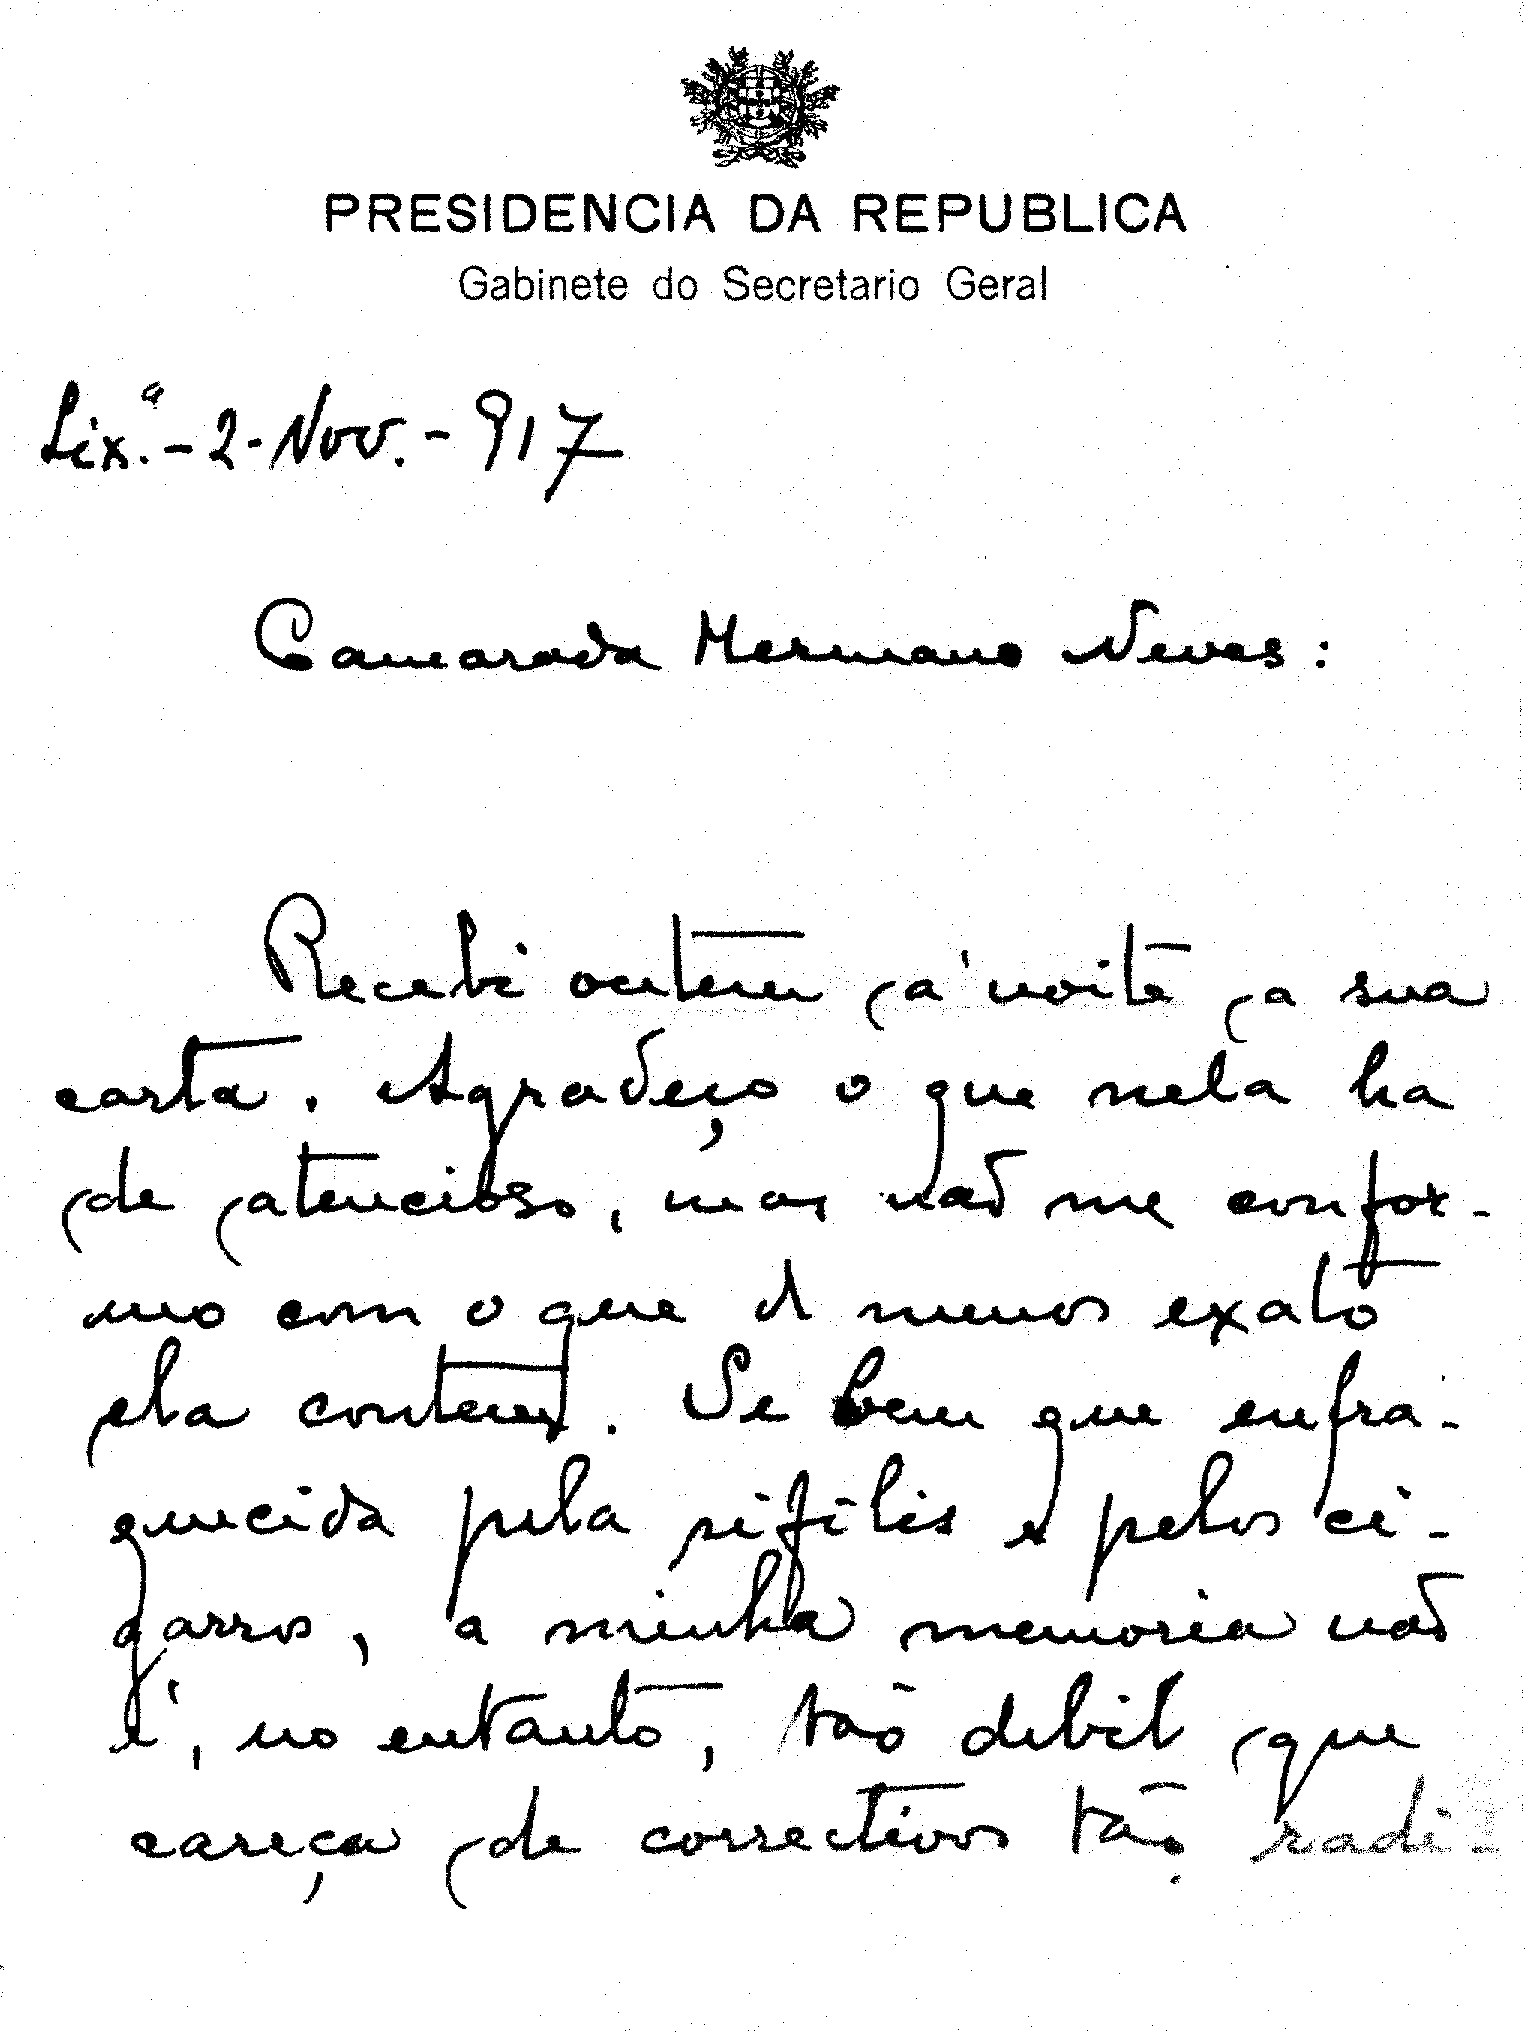 PRESIDENCIA DA REPUBLICA
Gabinete do Secretario Geral
Lix.ª - 2 - Nov. - 917
Camarada Hermano Neves:
Recebi ontem á noite a sua
carta. Agradeço o que nela ha
de atencioso, mas não me confor-
mo com o que d menos exato
ela contem. Se bem que enfra-
quecida pela sifilis e pelos ci-
garros, a minha memoria não
é, no entanto, tão debil que
careça de correctivos tão radi-